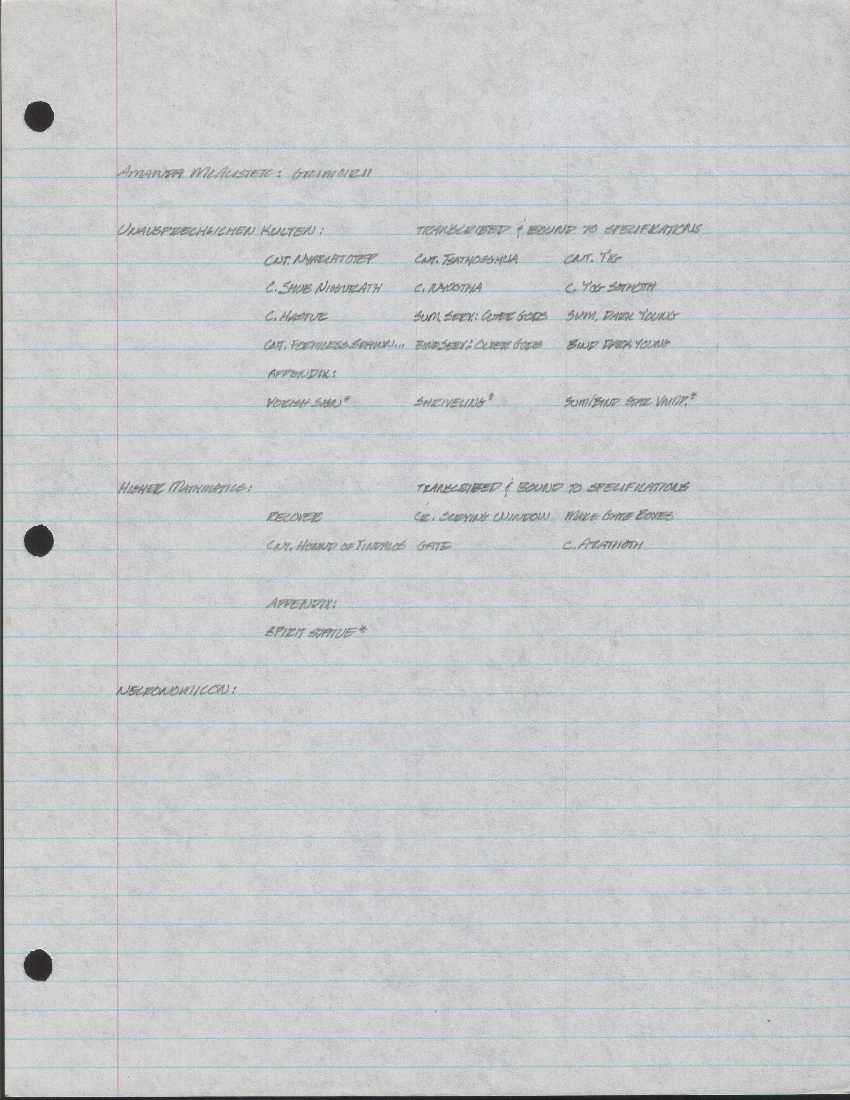 Amanda McAlister: Grimoire
Unausprechlichen Kulten: Transcribed & Bound to Specifications
Cnt. Nyarlatotep Cnt. Tsathoggua Cnt. Yig
C. Shub Niggurath C. Nyogtha C. Yog Sothoth
C. Hastur Sum. Serv: Outer Gods Sum. Dark Young
Cnt. Formless Spawn... Bind Serv: Outer Gods Bind Dark Young
Appendix:
Voorish Sign* Shriveling* Sum/Bind Star Vmp.*
Higher Mathmatics: Transcribed & Bound to Specifications
Recover Cr. Scrying Window Make Gate Boxes
Cnt. Hound of Tindalos Gate C.
Appendix:
Spirit Statue*
Necronomicon: